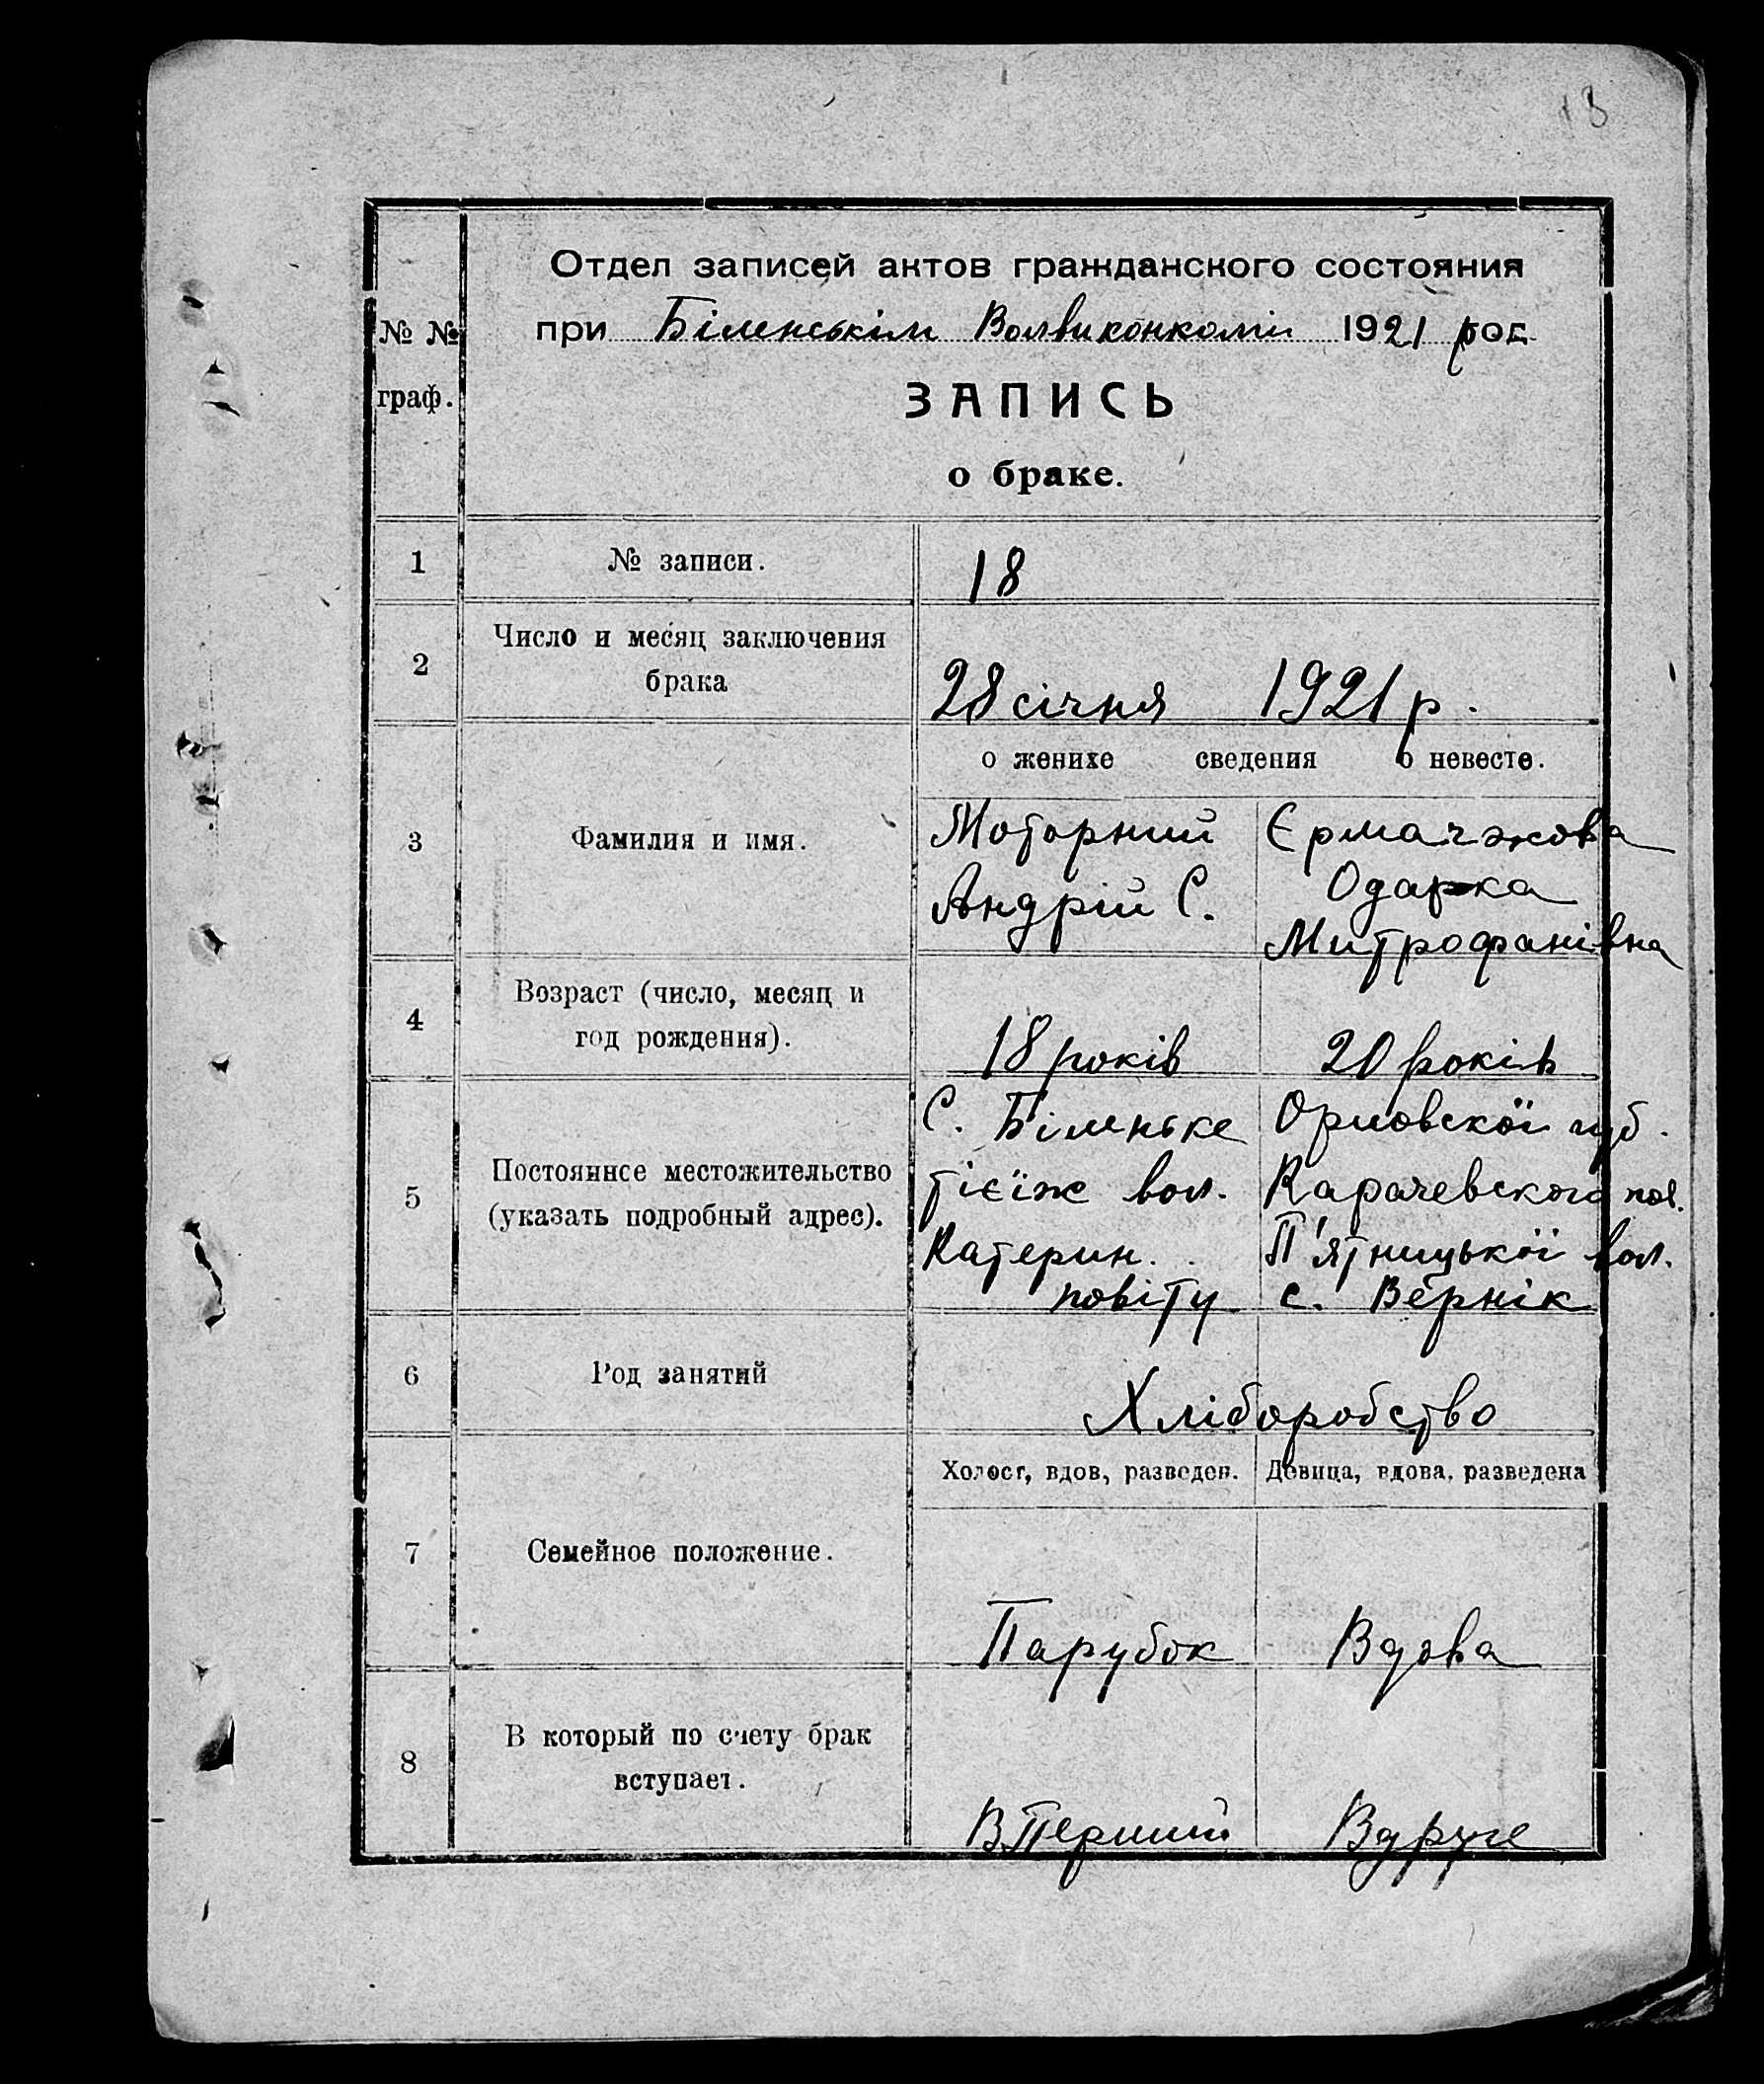 18
Отдел записей актов гражданского состояния
№ №
граф.
при Біленськім Волвиконкомі 1921 рог.
ЗАПИСЬ
о браке.
1
№ записи.
18
2
Число и месяц заключения
брака
28 січня 1921 р.
о женихе сведения о невесте.
3
Фамилия и имя.
Моторний
Андрій С.
Єрмачэкова
Одарка
Митрофанівна
4
Возраст (число, месяц и
год рождения).
18 років
20 років
5
Постояннсе местожительство
(указать подробный адрес).
С. Біленьке
тієїж вол.
Катерин.
повіту
Орловскої губ.
Карачевского пов.
П'ятницької вол.
с. Вернік
6
Род занятий
Хліборобство
7
Семейное положение.
Холост, вдов, разведен.
Девица, вдова, разведена
Парубок
Вдова
8
В который по счету брак
вступает.
В Перший
В друге